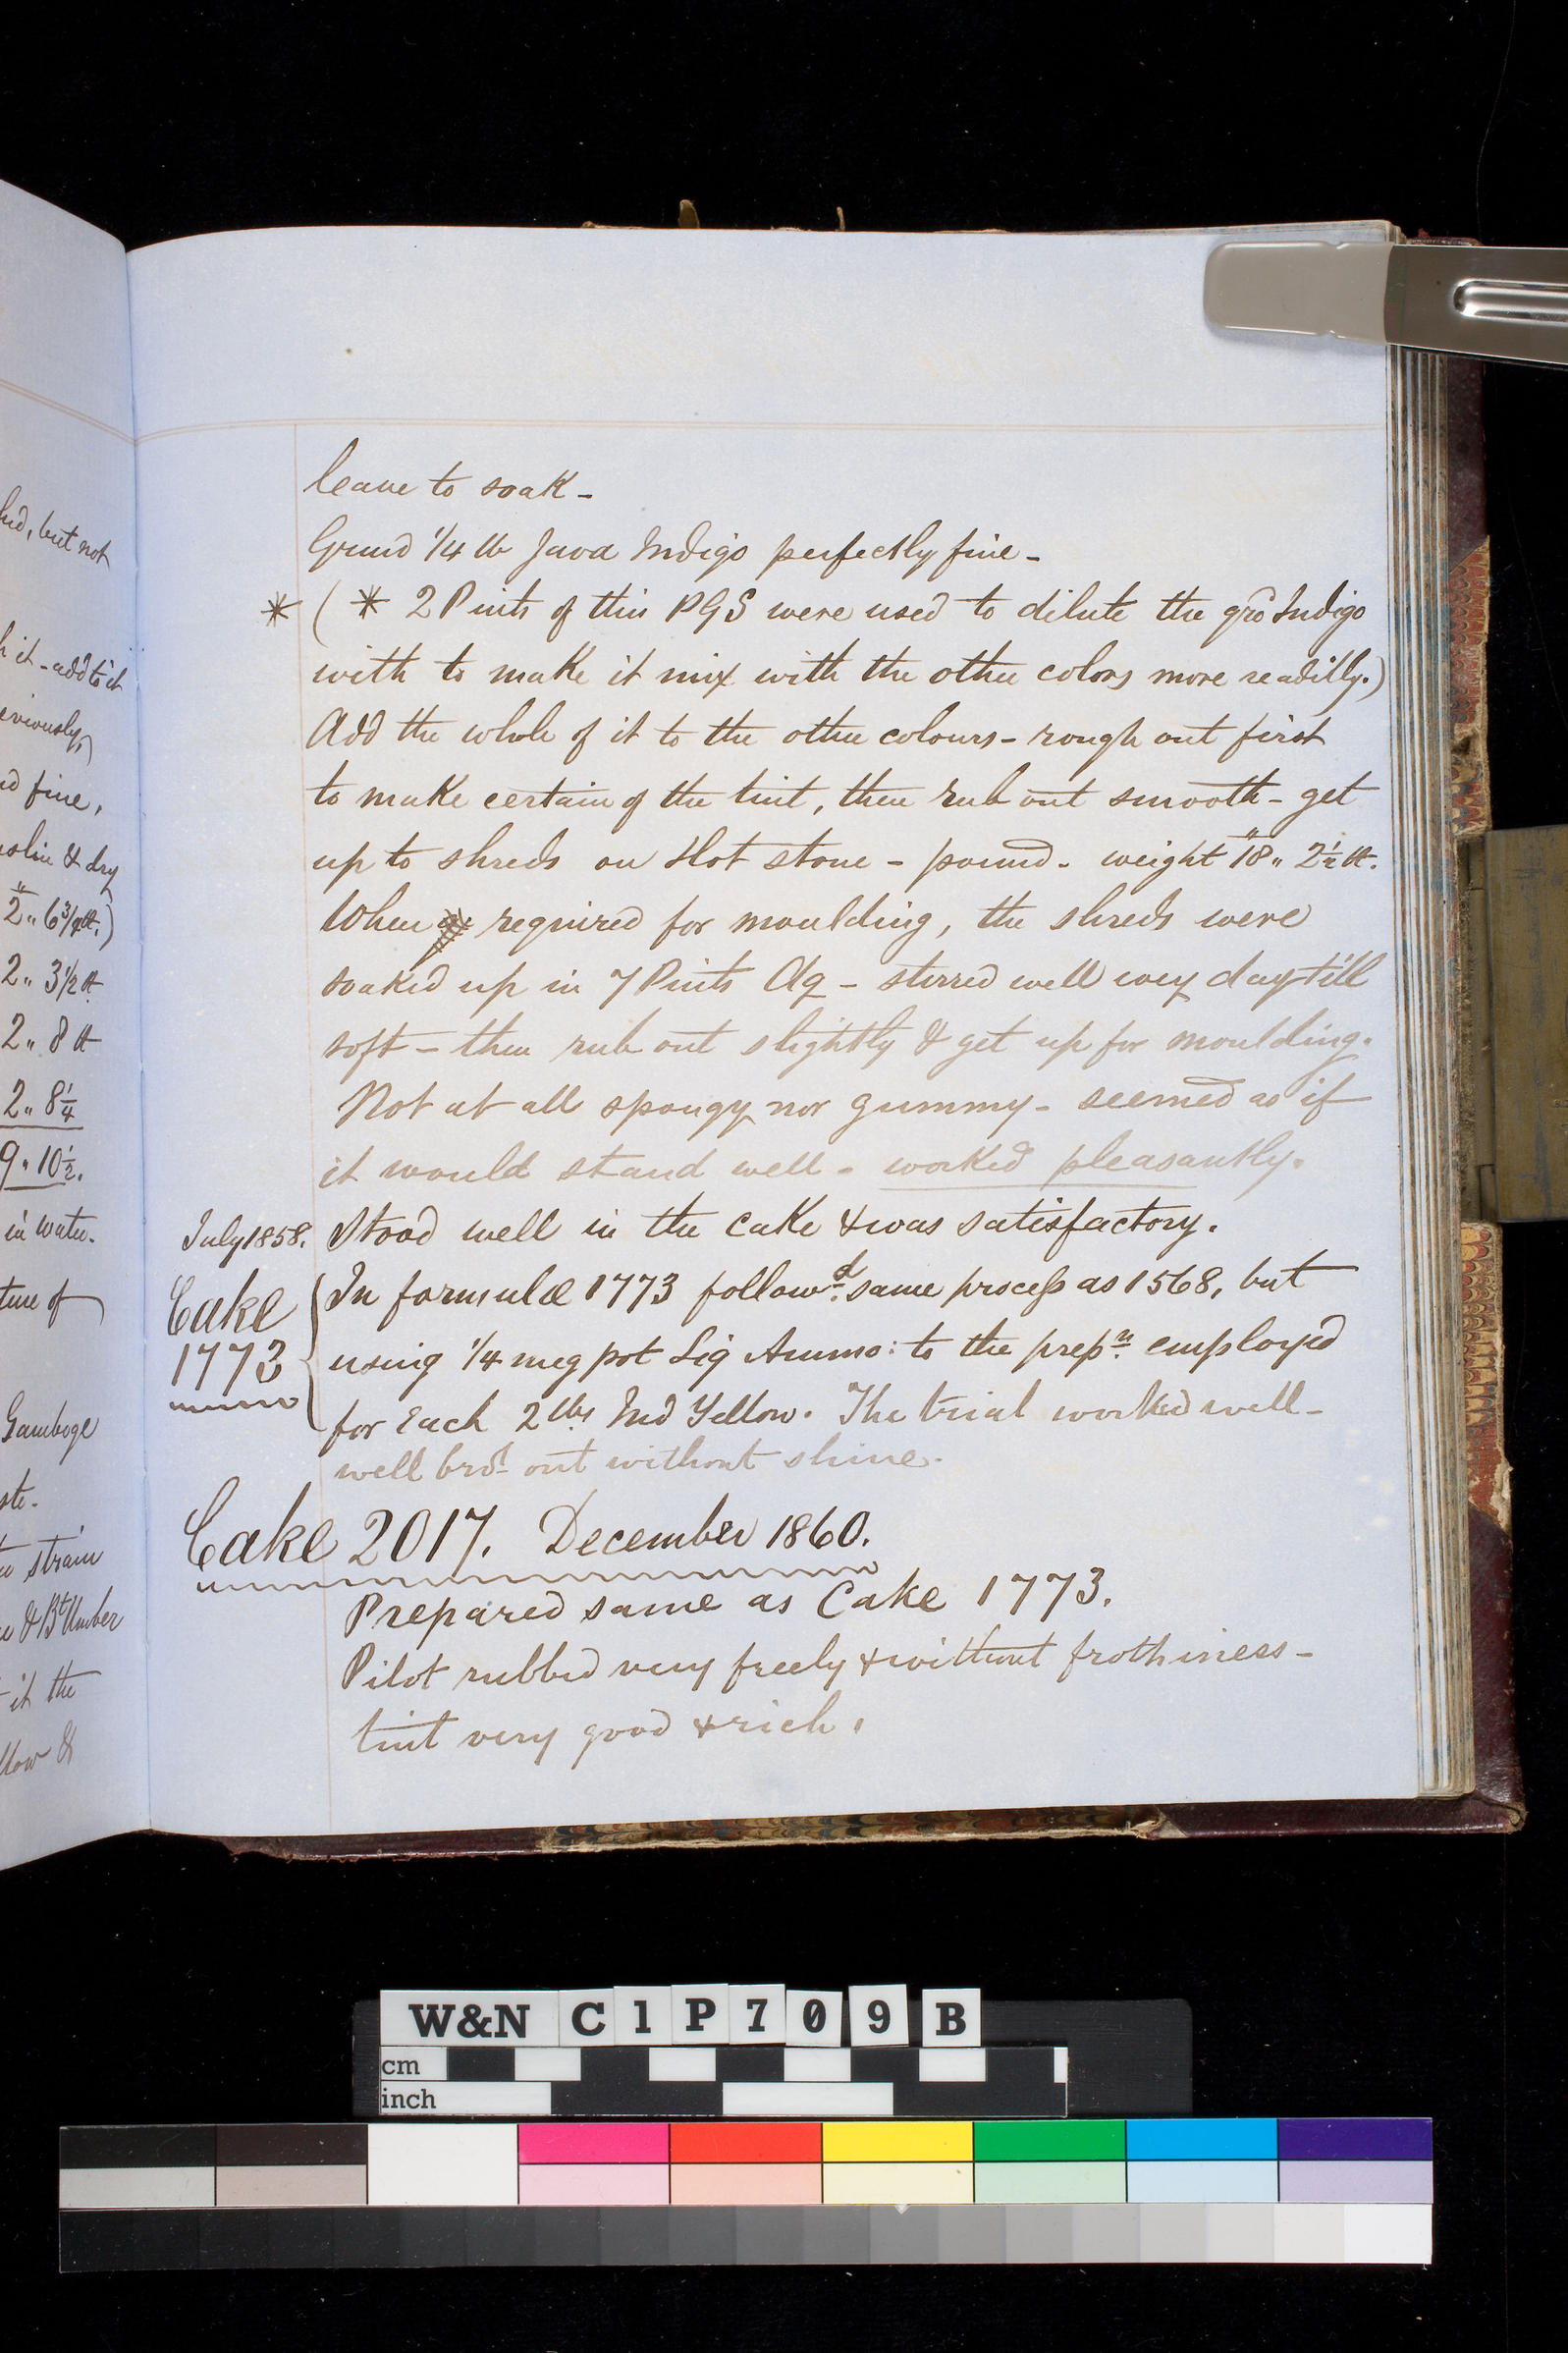 hid, but not
h it - add to it
eviously,)
d fine,
uslin & dry
2" 6 3/4 lt.)
2 " 3 1/2 lt
2 " 8 lt
2 " 8 1/4
9 " 10 1/2.
in water.
ture of
Gamboge
ste.
strain
& Bt Umber
it the
llow &
leave to soak -
Grind 1/4 lb Java Indigo perfectly fine -
* ( * 2 Pints of this PGS were used to dilute the gro Indigo
with to make it mix with the other colors more readilly.)
Add the whole of it to the other colours - rough out first
to make certain of the tint, then rub out smooth - get
up to shreds on Hot stone - pound - weight 18 " 2 1/2 lt.
When required for moulding, the shreds were
soaked up in 7 Pints Aq - stirred well every day till
soft - then rub out slightly & get up for moulding.
Not at all spongy nor gummy - seemed as if
it would stand well - worked pleasantly.
July 1858. Stood well in the cake & was satisfactory.
Cake 1773 { In formulæ 1773 followd. same process as 1568, but
using 1/4 meg pot Liq Ammo: to the prepn. employed
for Each 2 lbs Ind Yellow. The trial worked well -
well brot out without shine.
Cake 2017. December 1860.
Prepared same as Cake 1773.
Pilot rubbed very freely & without frothiness -
tint very good & rich.
W&N C1P709B
cm
inch